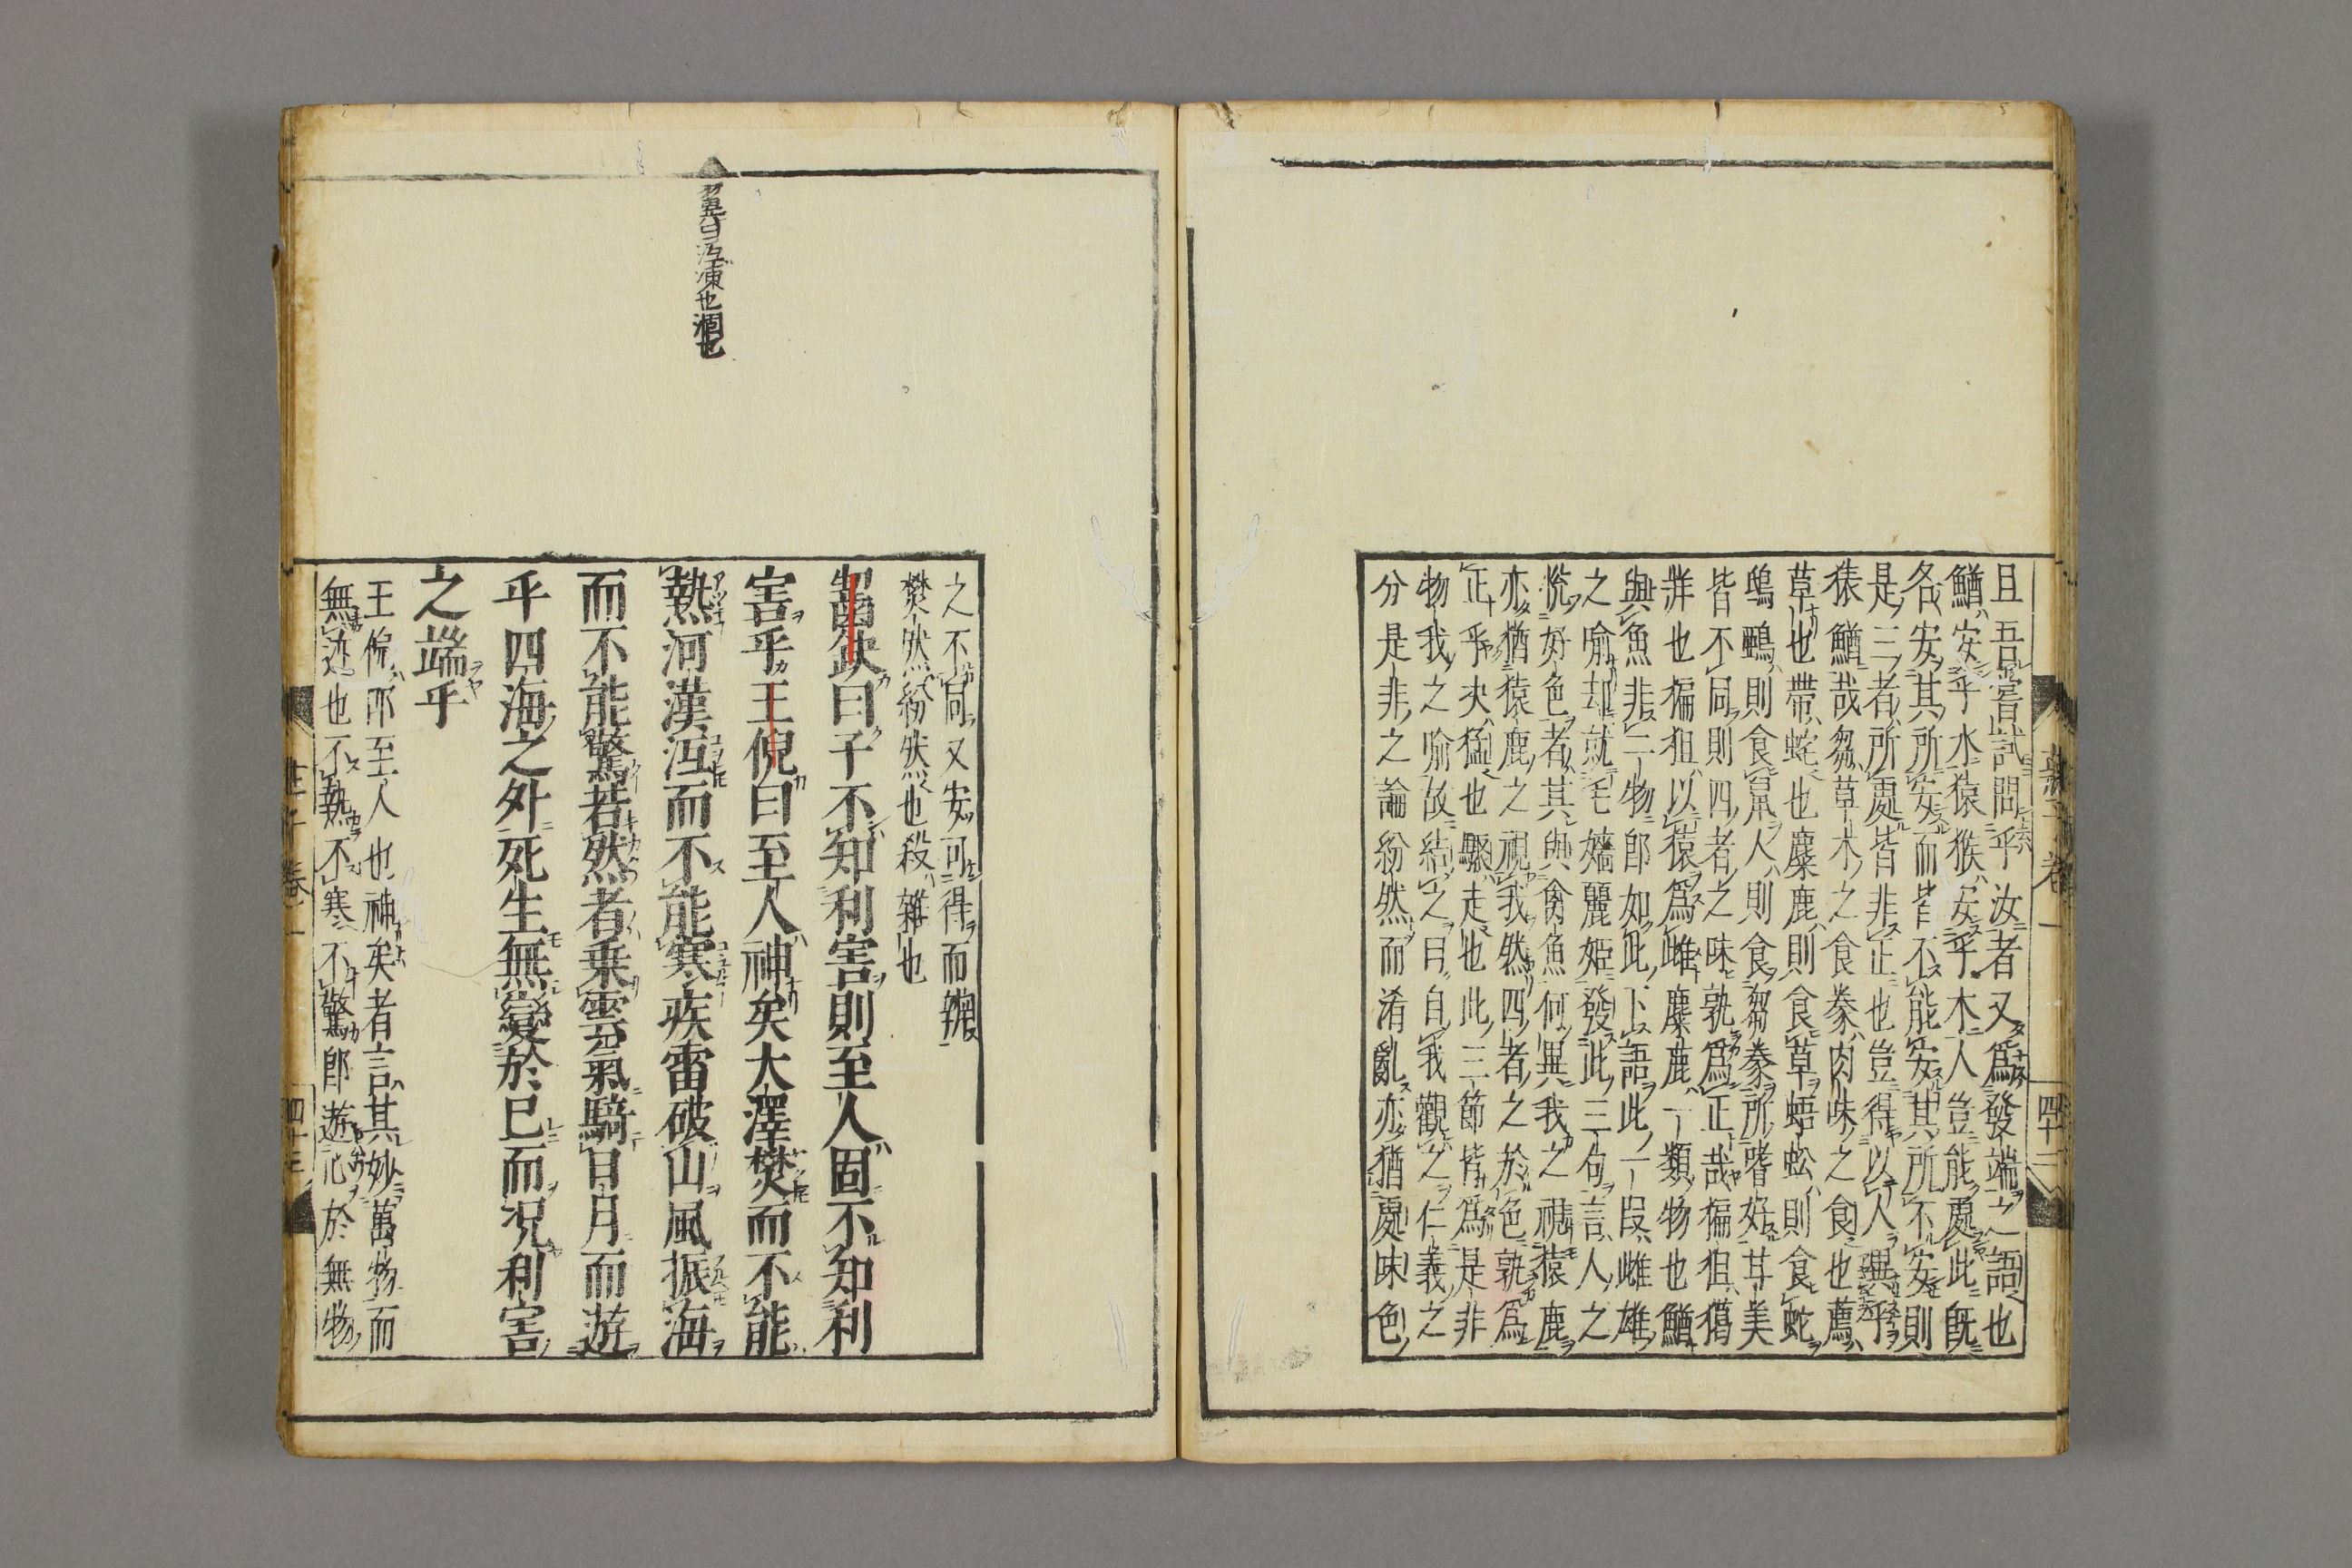 且吾嘗試問乎汝者又爲發端之語也
鰌安乎水猿猴安乎木人豈能處此既
各安其所安而皆不能安其所不安則
是三者所處皆非正也豈得以人異乎
猿鰌哉芻草木之食豢肉味之食也薦
草也帶蛇也麋鹿則食草蜈蚣則食蛇
鴟鴉則食鼠人則食芻豢所嗜好其美
皆不同則四者之味孰爲正哉猵狙獦
牂也猵狙以猿爲雌麋鹿一類物也鰌
與魚非二物即如此下語此一段雌雄
之喻却就毛嬙麗姬發此三句言人之
悅好色者其與禽魚何異我之視猿鹿
亦猶猿鹿之視我然四者之於色孰爲
正乎决猛也驟走也此三節皆爲是非
物我之喻故結之曰自我觀之仁義之
分是非之論紛然而淆亂亦猶處味色
莊子卷一
四十二
之不同又安可得而辯
樊然紛然也殽雜也
齧缺曰子不知利害則至人固不知利
害乎王倪曰至人神矣大澤焚而不能
熱河漢冱而不能寒疾雷破山風振海
而不能驚若然者乗雲氣騎日月而遊
乎四海之外死生無變於已而況利害
之端乎
王倪即至人也神矣者言其妙萬物而
無迹也不熱不寒不驚即遊心於無物
翼曰冱凍也涸也
莊子卷一
四十三